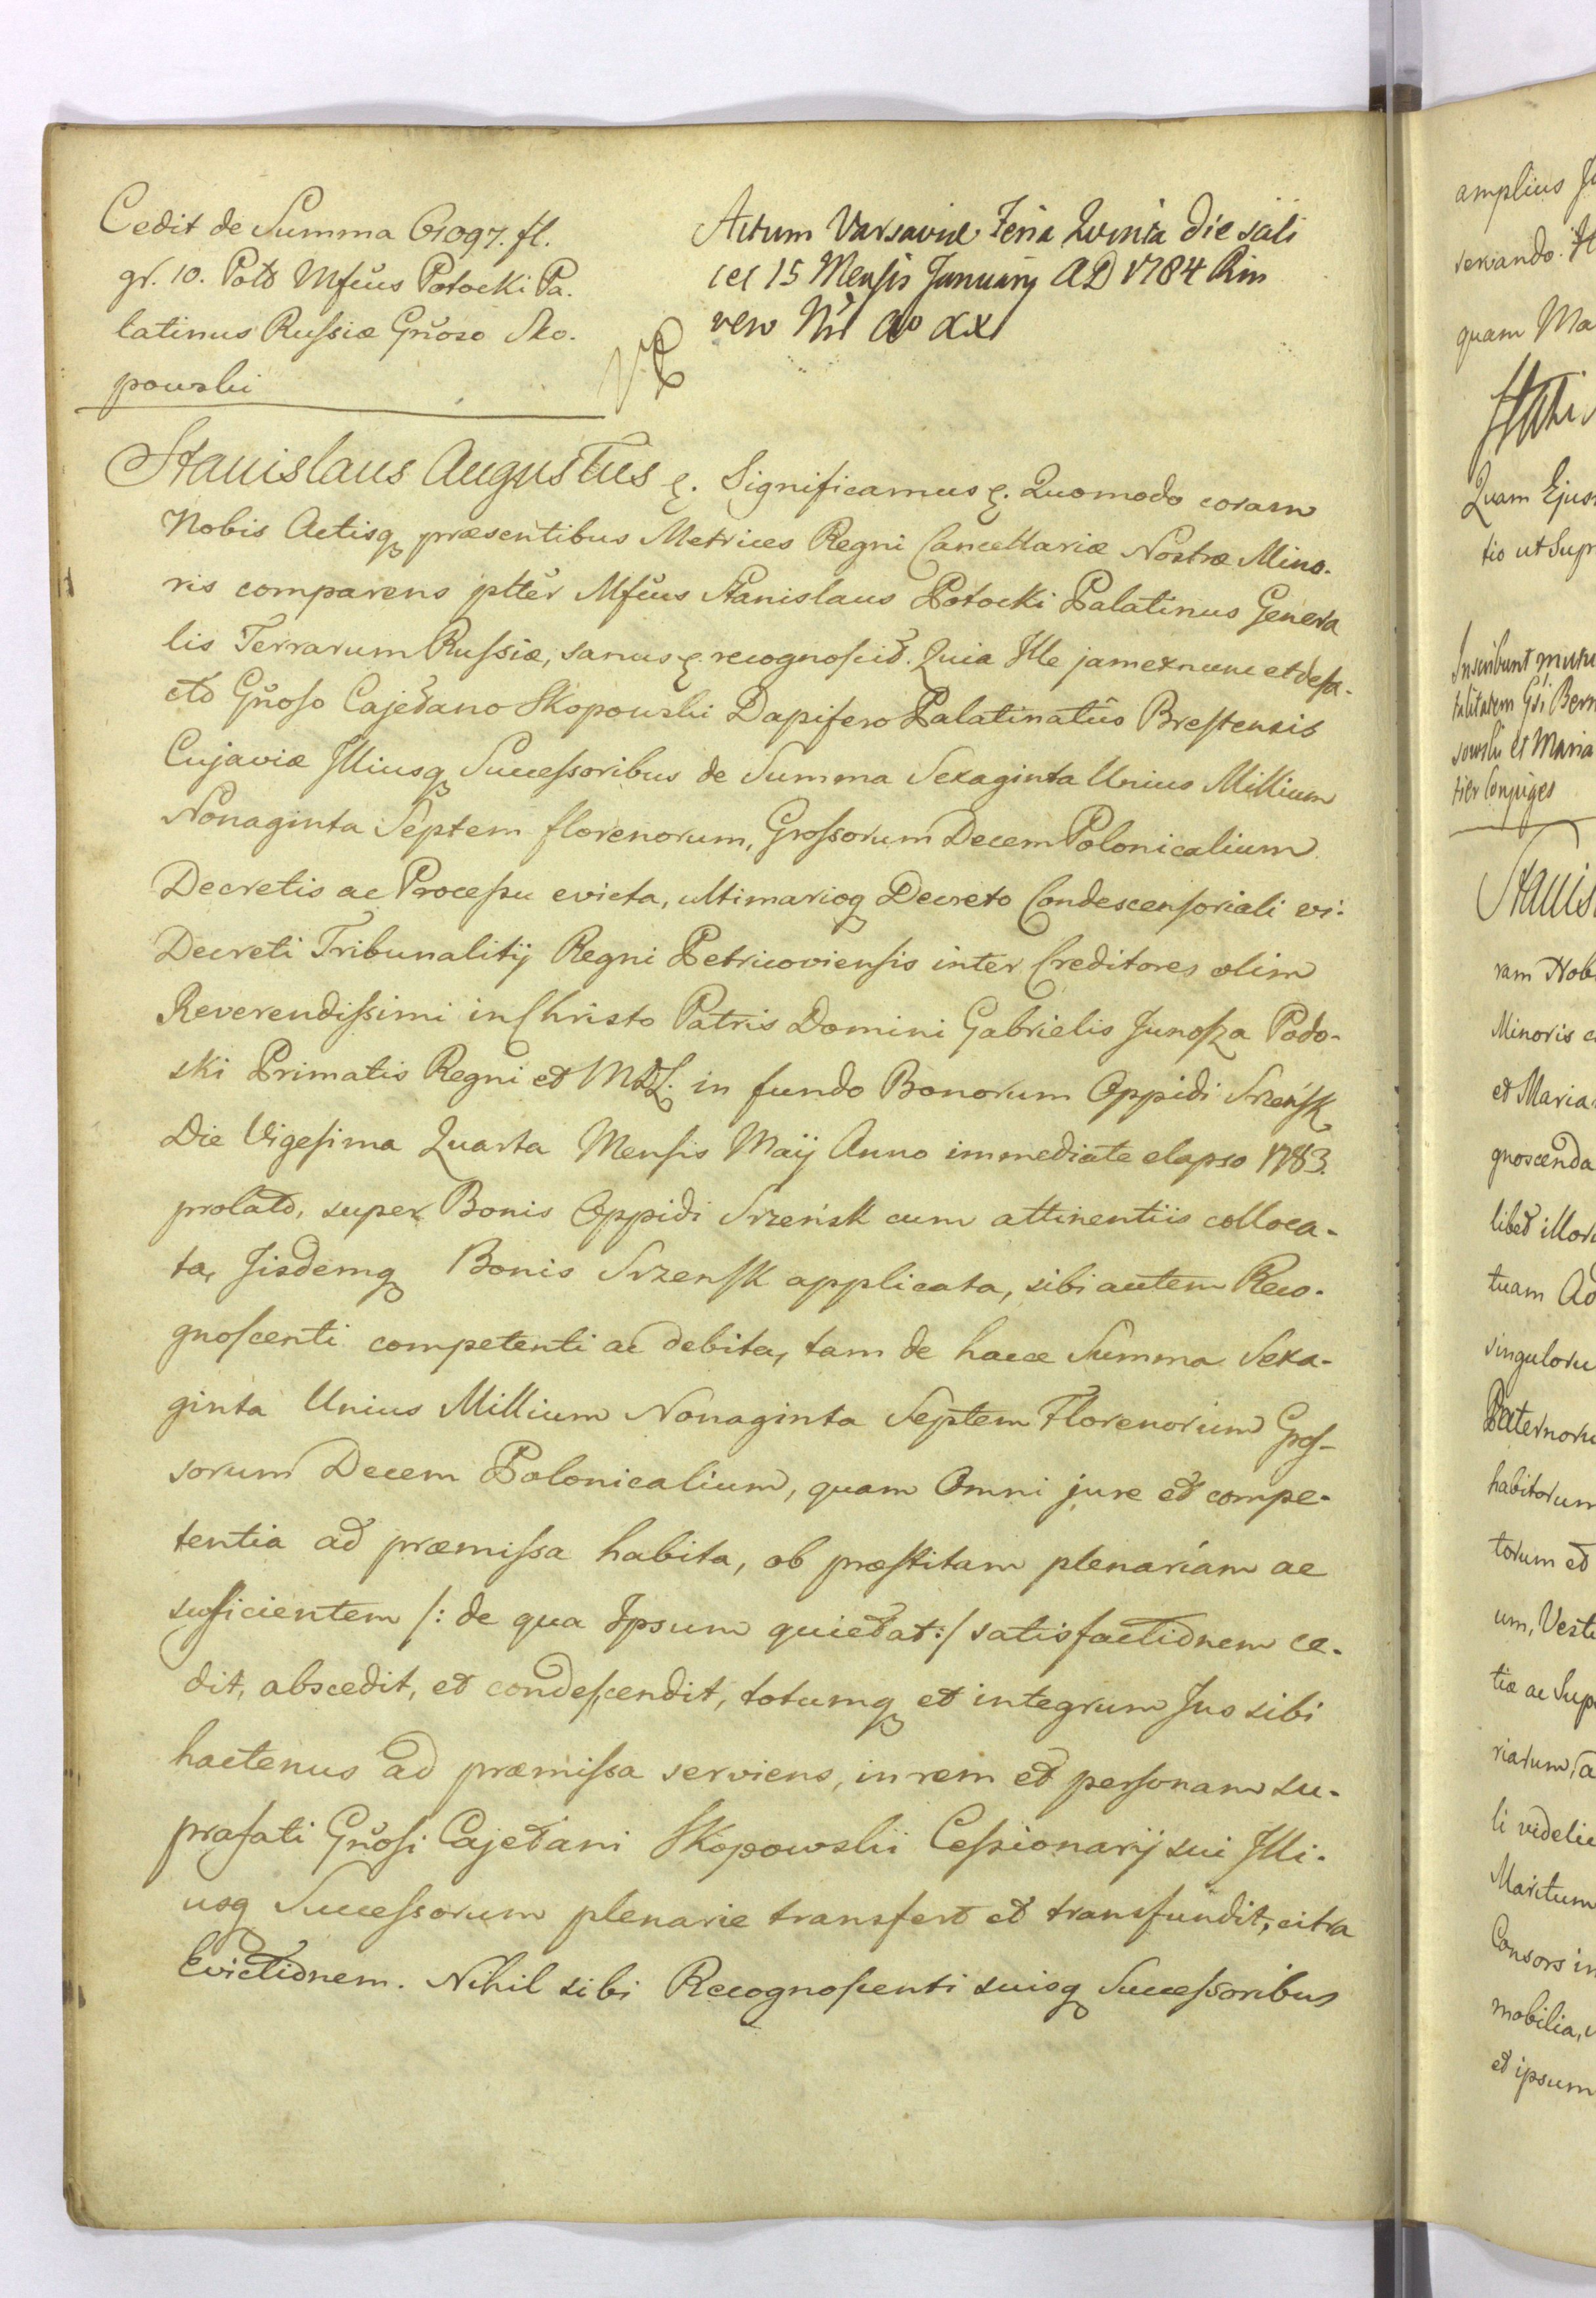 Cedit de Summa 61097. fl.
gr. 10. Polo Mfcus Potocki Pa.
latinus Russiæ Gnoso Sko.
powski
Actum Varsaviæ Feria Quinta die scili
cet 15 Mensis January AD 1784
vero Nri Ao XX
Stanislaus Augustus &. Significamus &. Quomodo coram
Nobis Actisq præsentibus Metrices Regni Cancellariæ Nostræ Mino-
ris comparens pltter Mfcus Stanislaus Potocki Palatinus Genera
lis Terrarum Russiæ, sanus & recognovit. Quia Ille jam ex nunc et de fa-
cto Gnoso Cajetano Skopowski Dapifero Palatinatûs Brestensis
Cujaviæ Illiusq Successoribus de Summa Sexaginta Unius Millium
Nonaginta Septem florenorum, Grossorum Decem Polonicalium
Decretis ac Processu evicta, ultimarioq Decreto Condescensoriali vi.
Decreti Tribunalitij Regni Petricoviensis inter Creditores olim
Reverendissimi in Christo Patris Domini Gabrielis Junosza Podo-
ski Primatis Regni et MDL. in fundo Bonorum Oppidi Srzeńsk
Die Vigesima Quarta Mensis Maij Anno immediate elapso 1783.
prolato, super Bonis Oppidi Srzeńsk cum attinentiis colloca-
ta, Iisdemq Bonis Srzensk applicata, sibi autem Reco-
gnoscenti competenti ac debita, tam de hacce Summa Sexa-
ginta Unius Millium Nonaginta Septem Florenorum Gros-
sorum Decem Polonicalium, quam Omni jure et compe-
tentia ad præmissa habita, ob præstitam plenariam ac
sufficientem /: de qua Ipsum quietat :/ satisfactionem ce-
dit, abscedit, et condescendit, totumq et integrum Jus sibi
hactenus ad præmissa serviens, in rem et personam su-
prafati Gnosi Cajetani Skopowski Cessionarij sui Illi-
usq Successorum plenarie transfert et transfundit, citra
Evictionem. Nihil sibi Recognoscenti suisq Successoribus
amplius
quam Ma
Quam Ejus
tio ut Supr
Inscribunt mutu
talitatem Gsi Bern
sowski et Maria
tier Conjuges
Stanis
ram Nob
Minoris c
et Maria
gnoscenda
libet illor
tuam Ad
singuloru
Paternoru
habitorum
torum et
um, Vest
tiæ ac Sup
riarum, a
li videlic
Maritum
Consors in
mobilia,
et ipsum